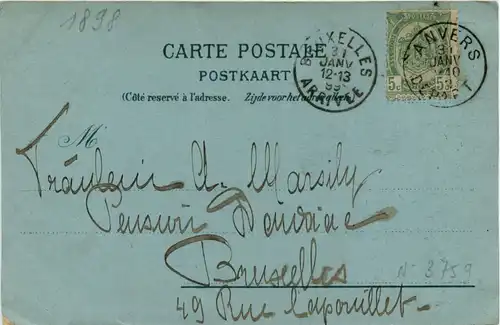 1898
CARTE POSTALE
POSTKAART
(Côté reservé à l'adresse. Zijde voor het adres alleen.)
BRUXELLES
31
JANV
12-13
99
ARRIVEE
ANVERS
31
JANV
10
DEPART
5c 5c
M
Fräulein A. Marsily
Bruxelles
49 Rue
N° 3759